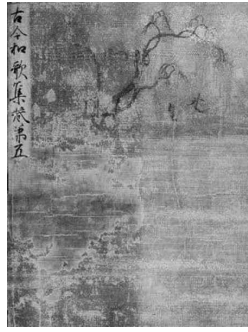 古今和歌集巻第五